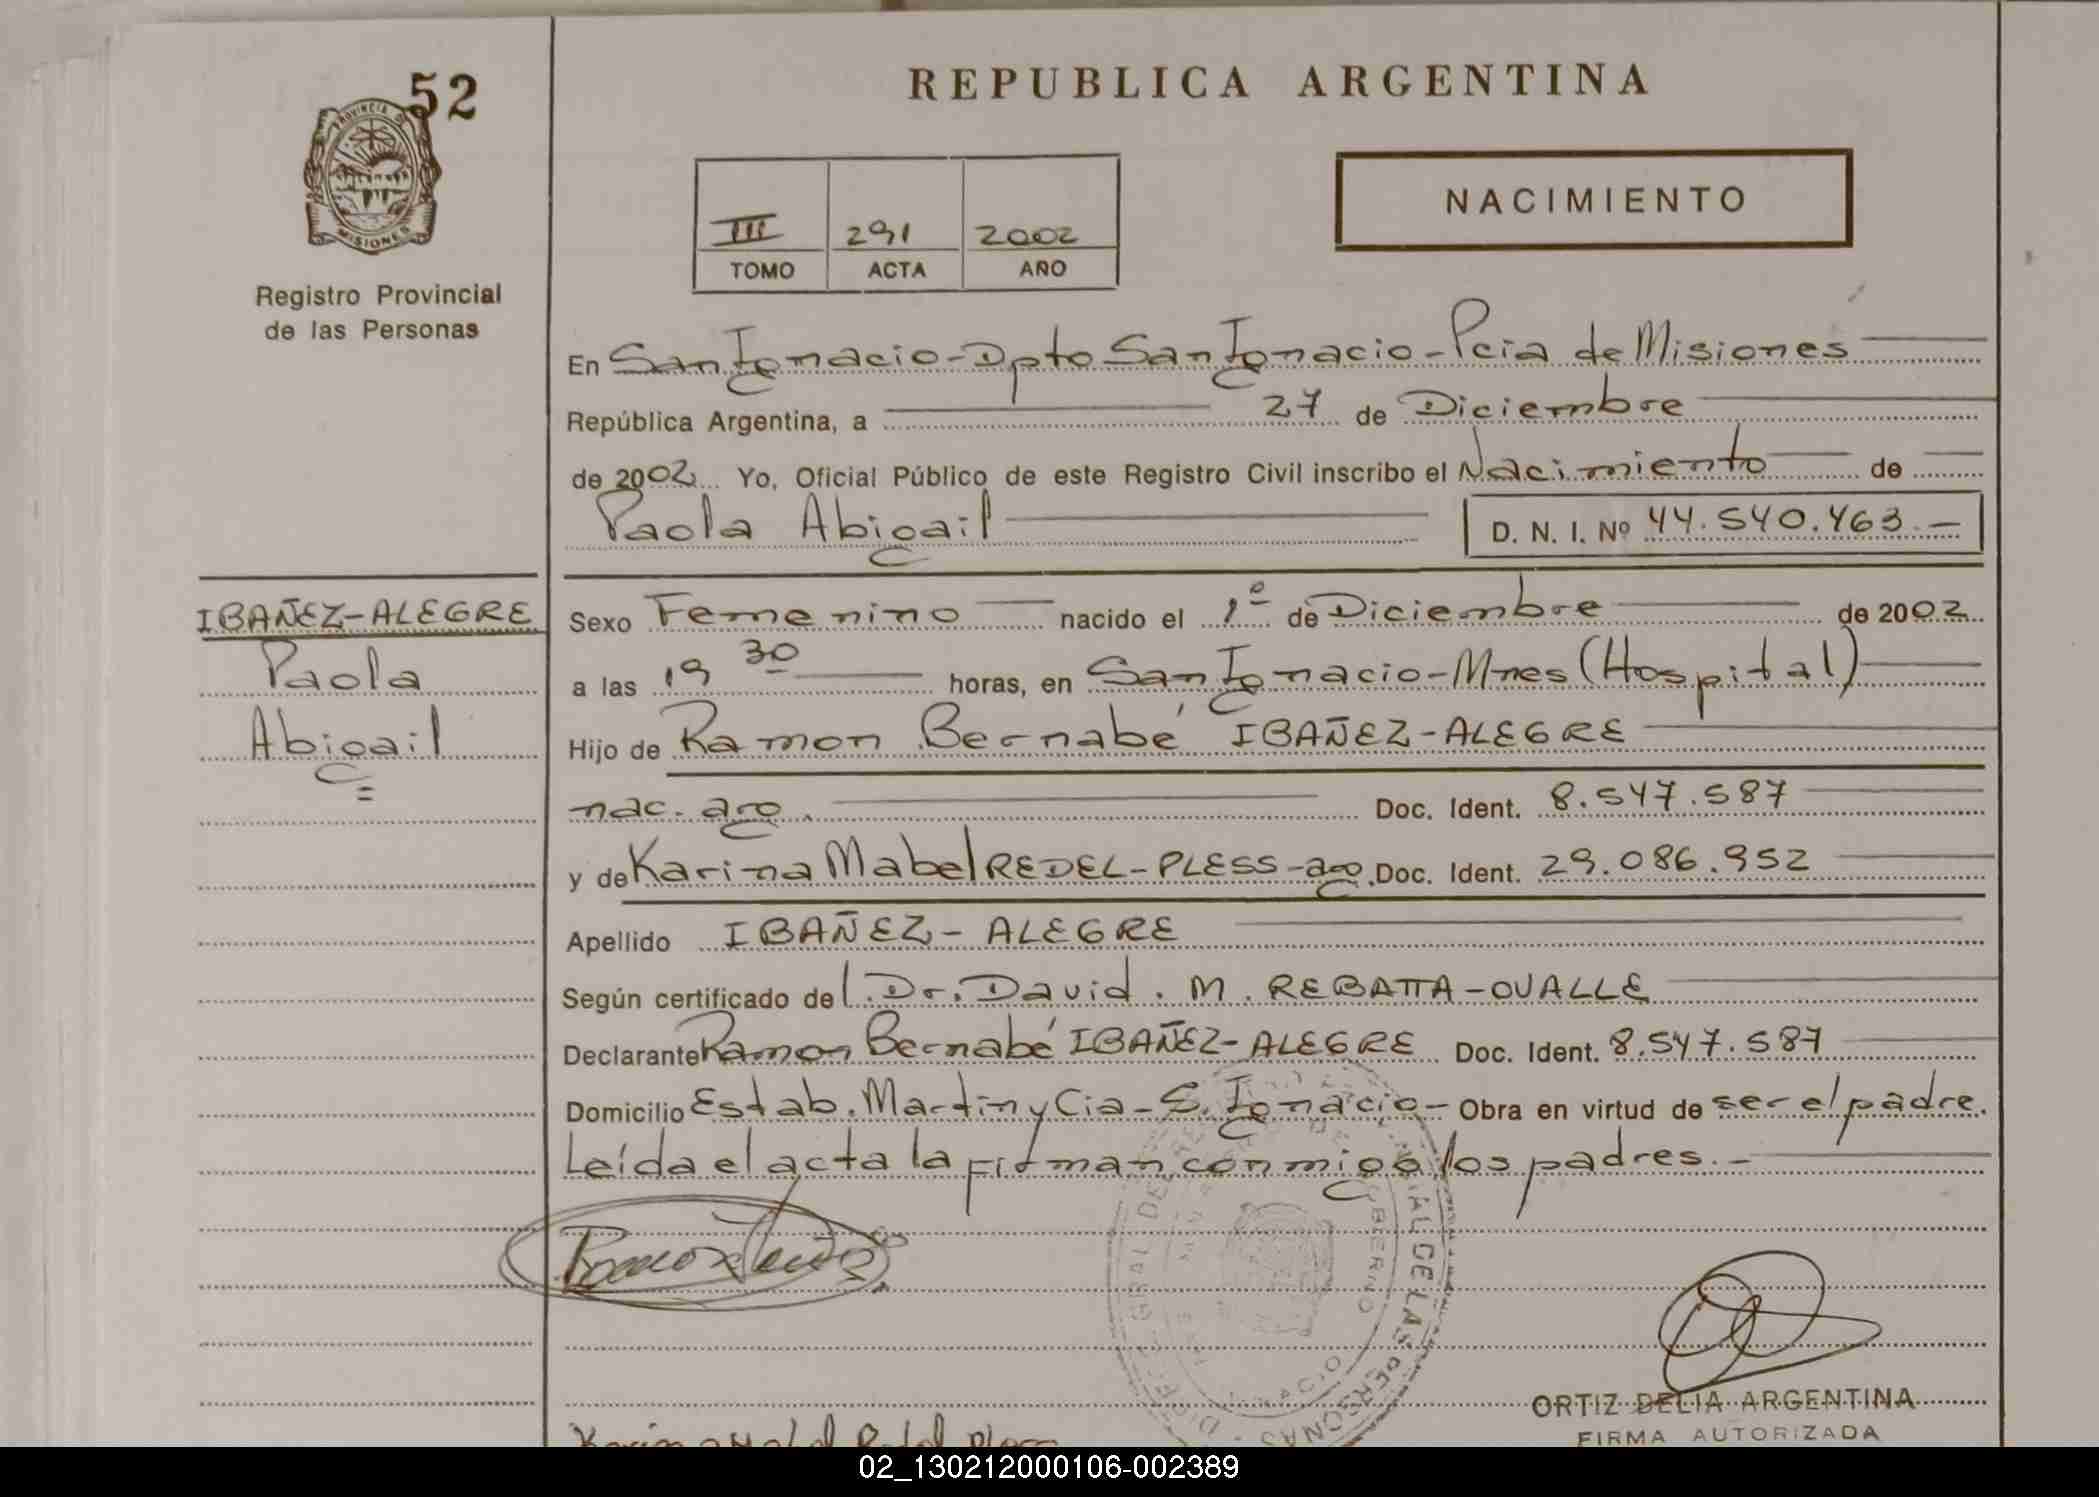 52
REPUBLICA ARGENTINA
PROVINCIA DE
MISIONES
Registro Provincial
de las Personas
III 291 2002
TOMO ACTA AÑO
NACIMIENTO
En San Ignacio-Dpto San Ignacio-Pcia de Misiones
República Argentina, a 27 de Diciembre
de 2002 Yo, Oficial Público de este Registro Civil inscribo el Nacimiento de
Paola Abigail D. N. I. Nº 44.540.463.-
IBAÑEZ-ALEGRE
Paola
Abigail
Sexo Femenino nacido el 1º de Diciembre de 2002
a las 19 30 horas, en San Ignacio-Mnes (Hospital)
Hijo de Ramon Bernabé IBAÑEZ-ALEGRE
nac. arg. Doc. Ident. 8.547.587
y de Karina Mabel REDEL-PLESS-arg. Doc. Ident. 29.086.952
Apellido IBAÑEZ-ALEGRE
Según certificado del Dr. David. M. REBATTA-OVALLE
Declarante Ramon Bernabé IBAÑEZ-ALEGRE Doc. Ident. 8.547.587
Domicilio Estab. Martin y Cia-S. Ignacio- Obra en virtud de ser el padre.
Leída el acta la firman conmigo los padres.-
ORTIZ DELIA ARGENTINA
FIRMA AUTORIZADA
02_130212000106-002389